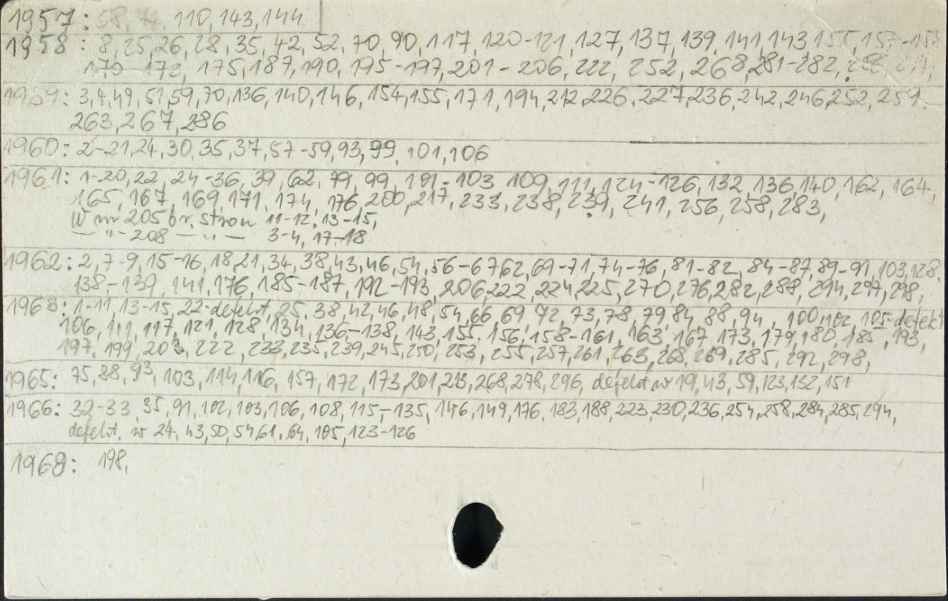 1957: 110, 143, 144
1958: 8, 25, 26, 28, 35, 42, 52, 70, 90, 117, 120-121, 127, 137, 139, 141, 143
170-172, 175, 187, 190, 195-197, 201-206, 222, 252, 268, 281-282,
1959: 3, 4, 49, 51, 59, 70, 136, 140, 146, 154, 155, 171, 194, 212, 226, 227, 236, 242, 246, 252, 259
263, 267, 286
1960: 2-21, 24, 30, 35, 37, 57-59, 93, 99, 101, 106
1961: 1-20, 22, 24-36, 39, 62, 79, 99, 101-103, 109, 111, 124-126, 132, 136, 140, 162, 164,
165, 167, 169, 171, 174, 176, 200, 217, 233, 238, 239, 241, 256, 258, 283,
W nr 205 br. stron 11-12, 13-15,
— " — 208 — " — 3-4, 17-18
1962: 2, 7-9, 15-16, 18, 21, 34, 38, 43, 46, 54, 56-67, 62, 69-71, 74-76, 81-82, 84-87, 89-91, 103, 128,
138-139, 141, 176, 185-187, 192-193, 206, 222, 224, 225, 270, 276, 282, 288, 294, 297, 298,
1963: 1-11, 13-15, 22-defekt, 25, 38, 42, 46, 48, 54, 66, 69, 72, 73, 78, 79, 84, 88, 94, 100, 102, 105-defekt
106, 111, 117, 121, 128, 134, 136-138, 143, 155, 156, 158-161, 163, 167, 173, 179, 180, 185, 193,
197, 199, 203, 222, 233, 235, 239, 245, 250, 253, 255, 257, 261, 263, 268, 269, 285, 292, 298,
1965: 75, 88, 93, 103, 114, 116, 157, 172, 173, 201, 213, 268, 278, 296, defekt nr 19, 43, 59, 123, 132, 151
1966: 32-33, 35, 91, 102, 103, 106, 108, 115-135, 146, 149, 176, 183, 188, 223, 230, 236, 254, 258, 284, 285, 294,
defekt. nr 24, 43, 50, 54, 61, 64, 105, 123-126
1968: 198,